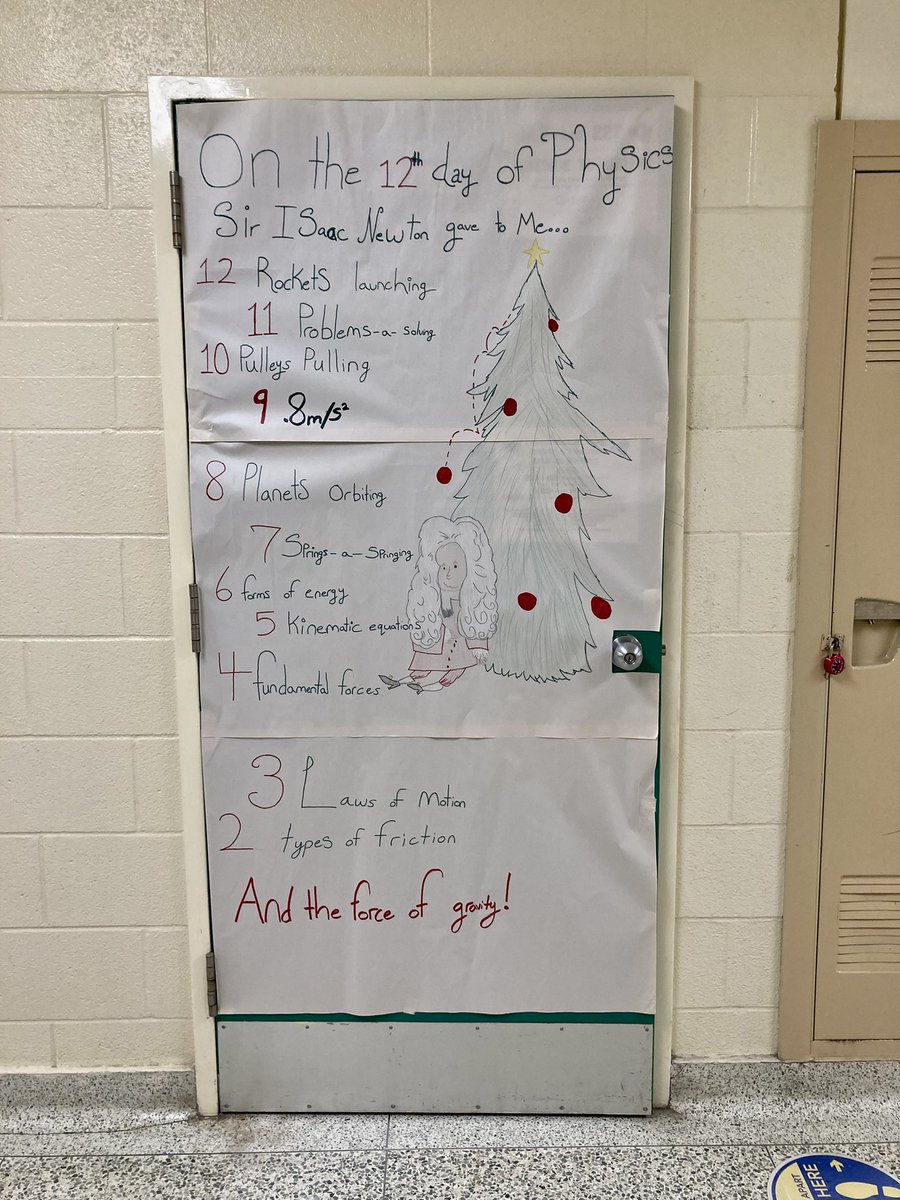 On the 12th day of Physics
Sir ISaac Newton gave to Me...
12 Rockets launching
11 Problems-a-solving
10 Pulleys Pulling
9 .8m/s²
8 Planets Orbiting
7 Springs-a-Springing
6 forms of energy
5 Kinematic equations
4 fundamental forces
3 Laws of Motion
2 types of friction
And the force of gravity!
APART
HERE